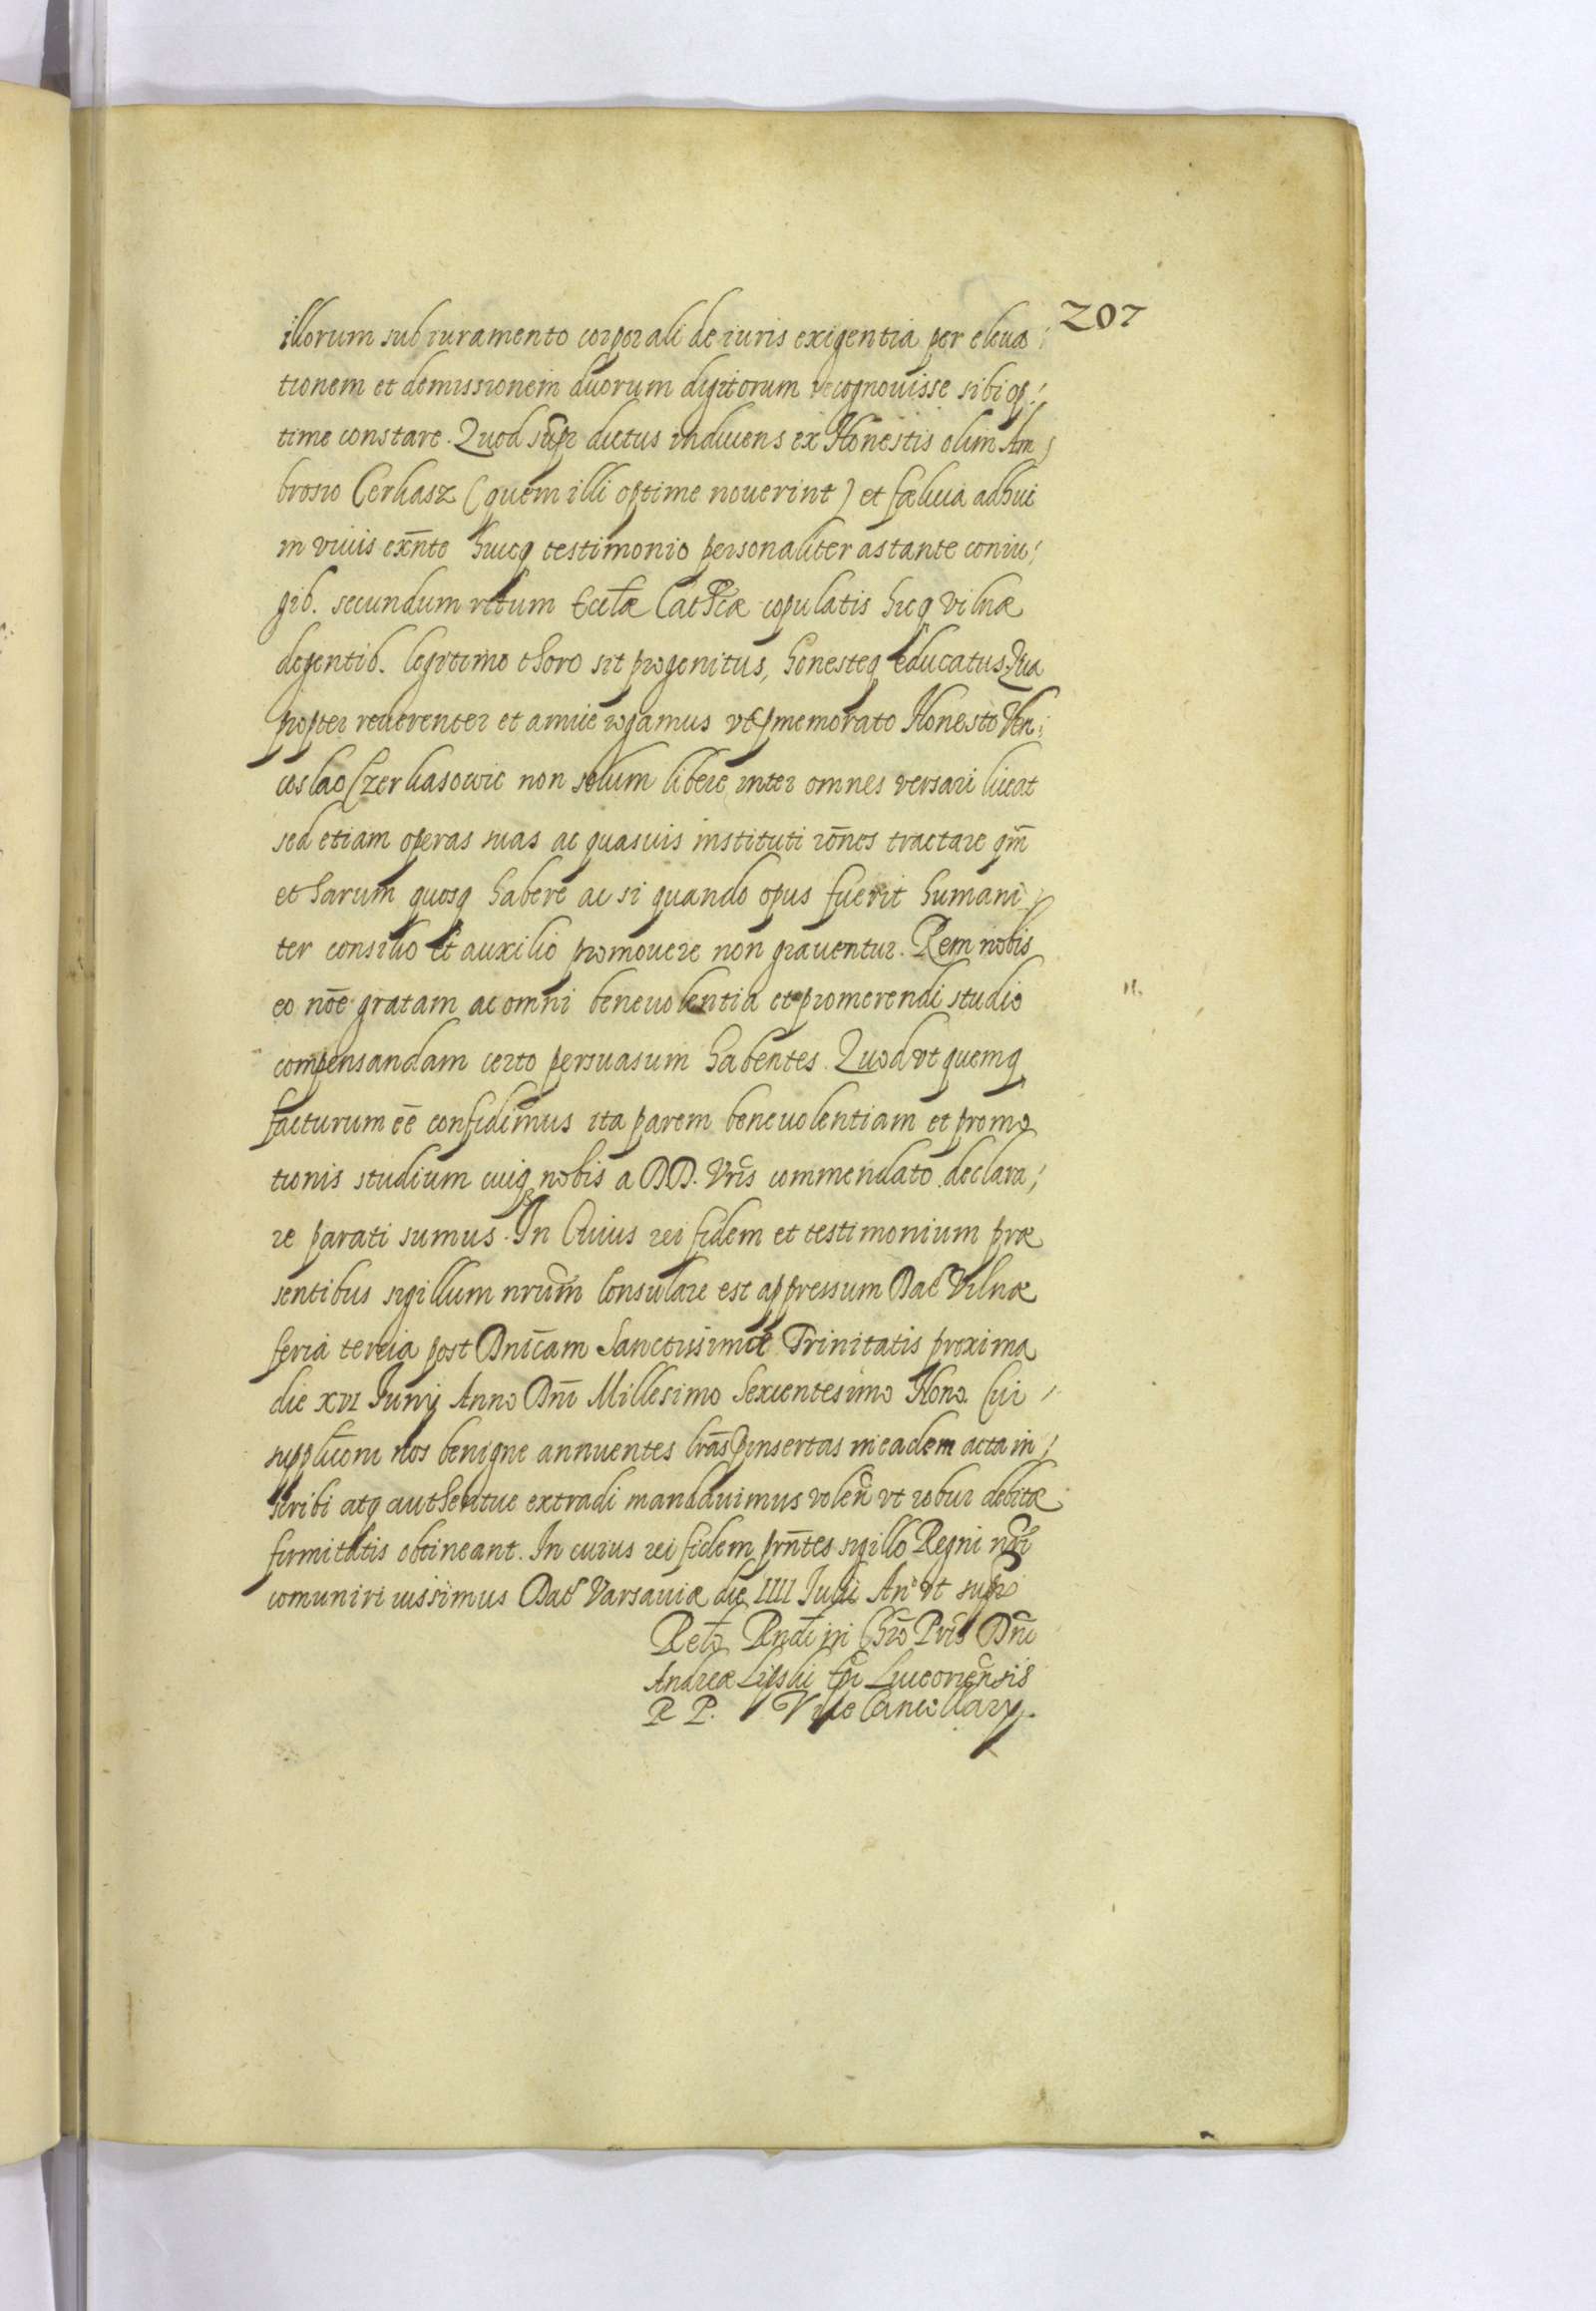 207
illorum sub iuramento corporali de iuris exigentia per eleva
tionem et demissionem duorum digitorum recognovisse sibi op:
time constare. Quod supr dictus inducens ex Honestis olim Am
brosio Cerkasz (quem illi optime noverint) et fælicia adhuc
in vivis exn̄te huicq testimonio personaliter astante coniu:
gib. secundum ritum Eccłæ Cathcæ copulatis hicq vilnæ
degentib. legitimo thoro sit progenitus, honesteq educatus. Qua
propter reverenter et amice rogamus vt pmemorato Honesto Ven:
ceslao Czerkasowic non solum libere inter omnes versari liceat
sed etiam operas suas ac quasvis instituti rōnes tractare qm̄
et harum quosq habere ac si quando opus fuerit humani
ter consilio et auxilio promovere non graventur. Rem nobis
eo nōe gratam ac omni benevolentia et promerendi studio
compensandam certo persuasum habentes. Quod vt quemq
facturum ēē confidimus ita parem benevolentiam et promo
tionis studium cuiq nobis a DD. Vris commendato declara:
re parati sumus. In Cuius rei fidem et testimonium præ
sentibus sigillum nrum Consulare est appressum Dat Vilnæ
feria tercia post Dnicam Sanctissimæ Trinitatis proxima
die xvi Junij Anno Dn̄i Millesimo Sexcentesimo Nono. Cui
supplicōni nos benigne annuentes lrās pinsertas in eadem acta in:
scribi atq authentice extradi mandavimus volen̄ vt robur debitæ
firmitatis obtineant. In cuius rei fidem prn̄tes sigillo Regni nri
comuniri iussimus Dat Varsaviæ die IIII Julii An° vt supr
Relō Rndi in Chrō Pris Dn̄i
Andreæ Lipski Epi Luceoriensis
R P. Vice Cancellary.